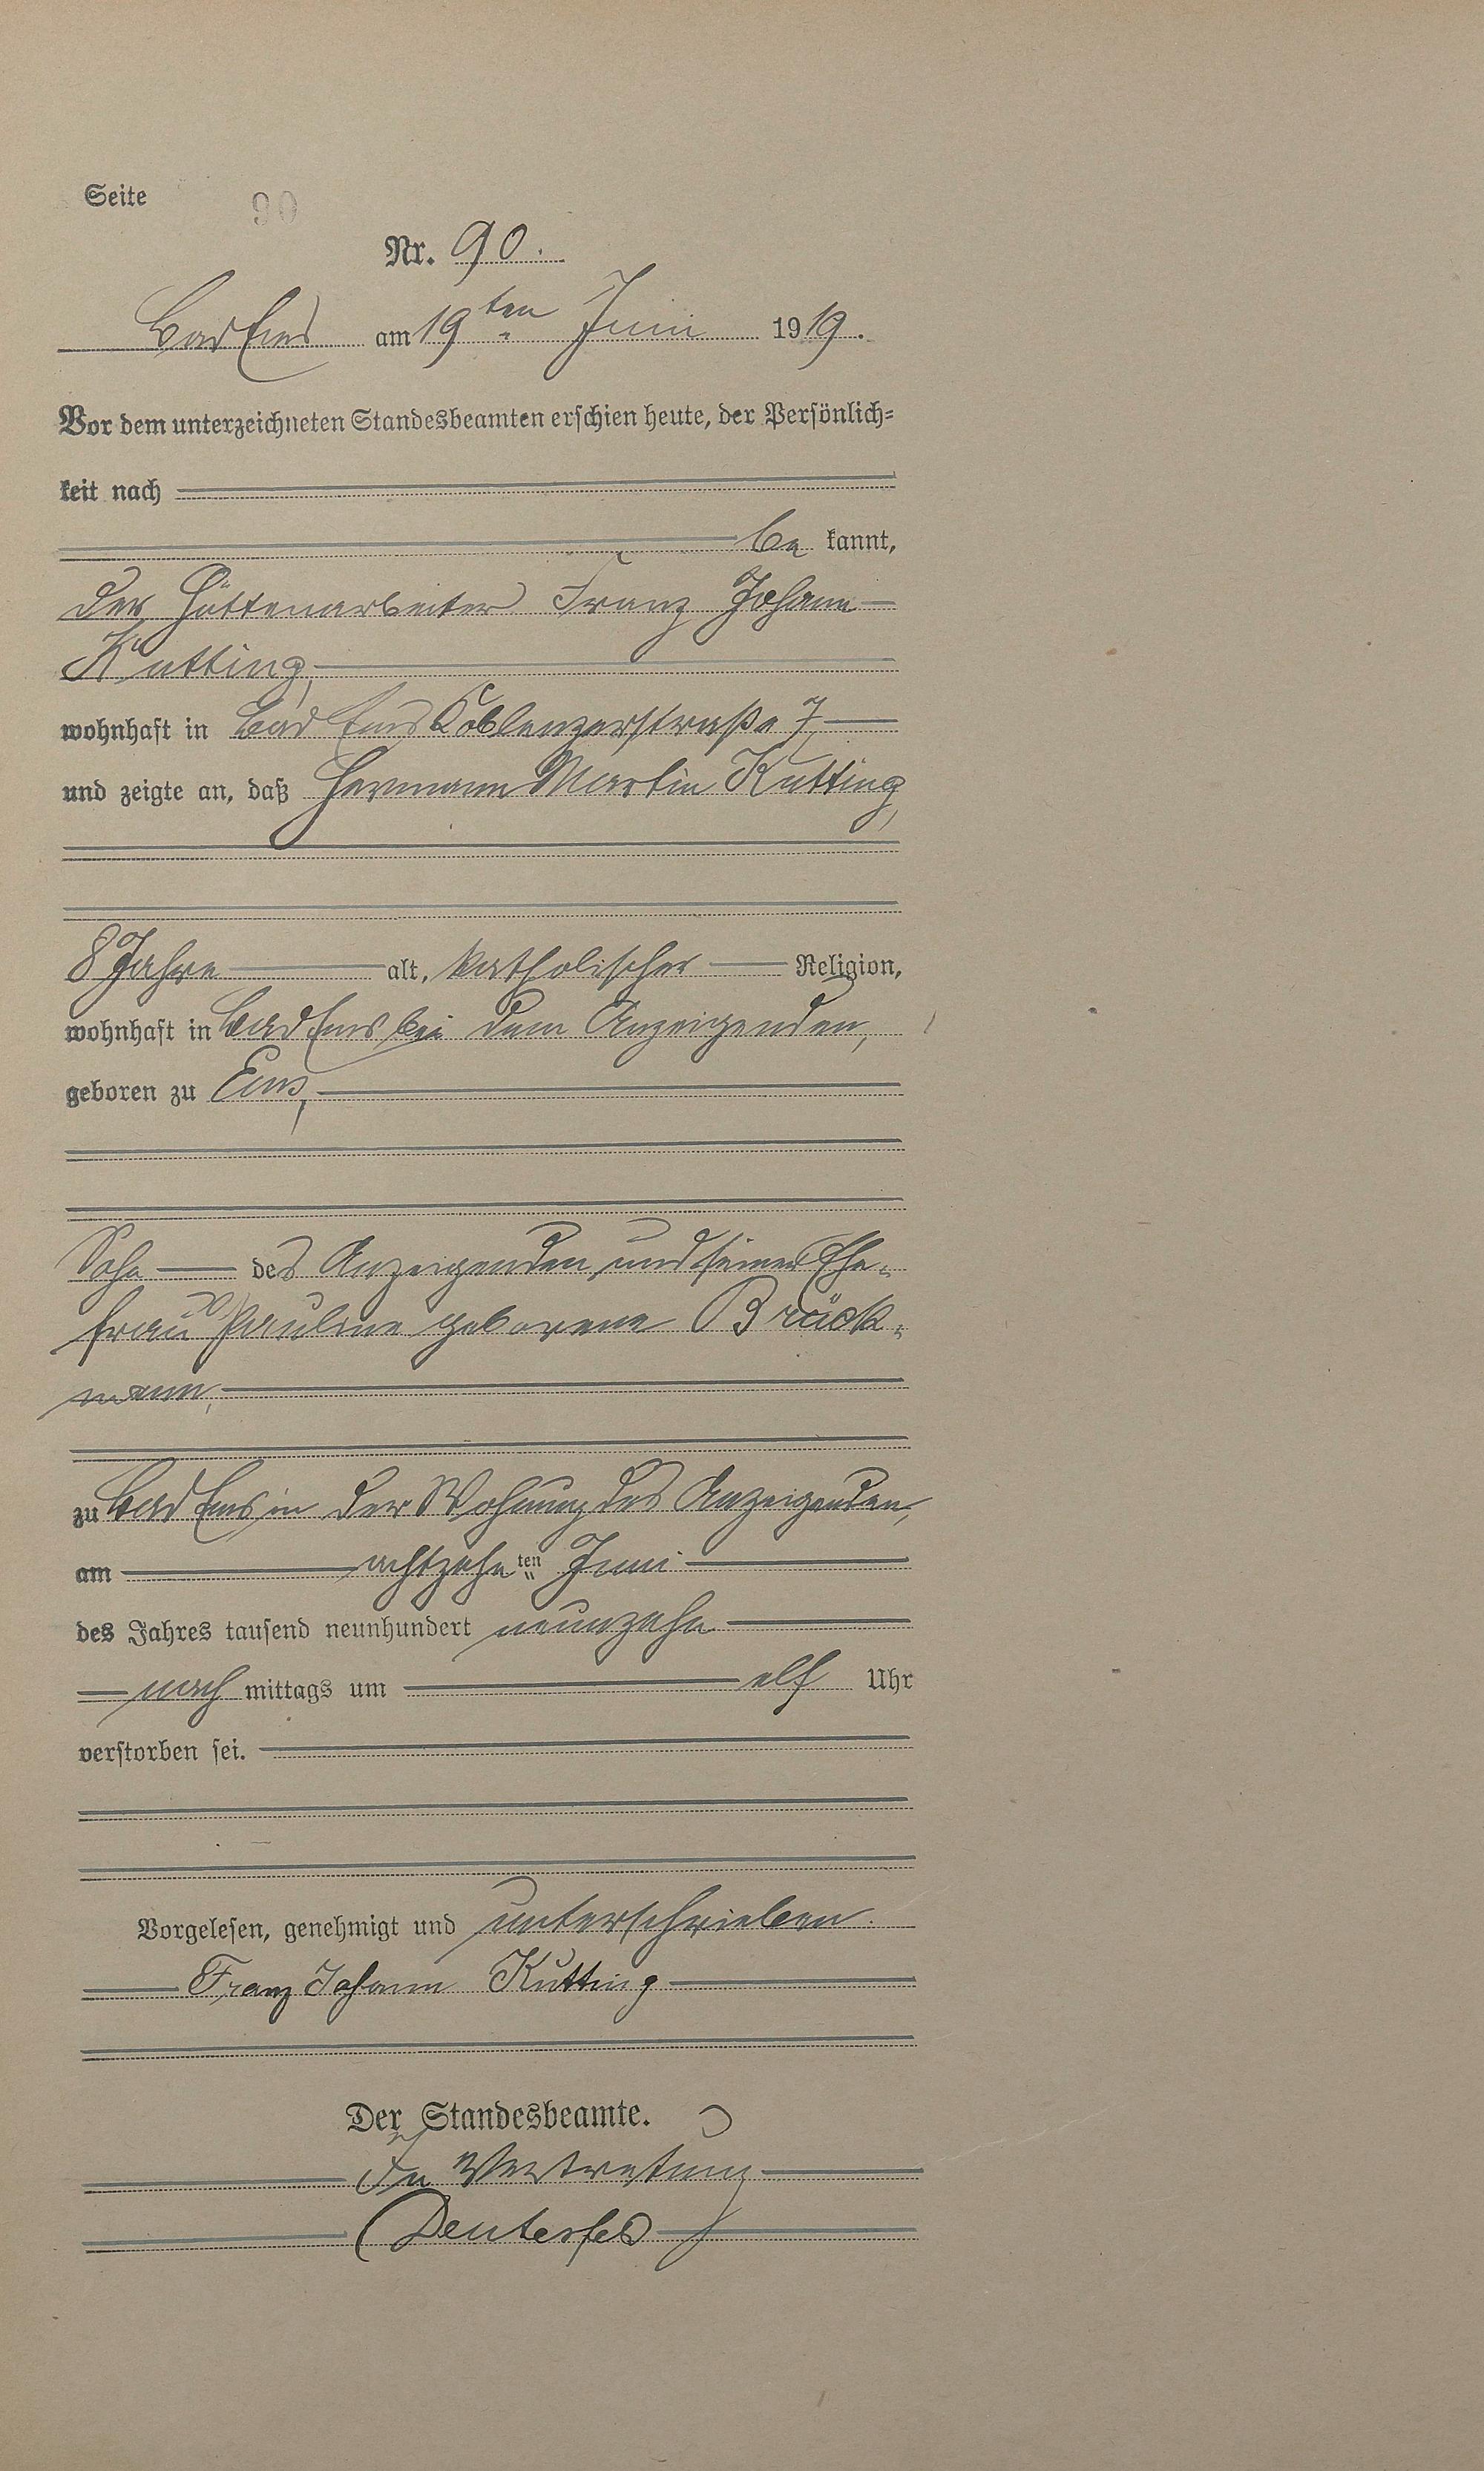 Seite 90
Nr. 90.
Bad Ems am 19ten Juni 1919.
Vor dem unterzeichneten Standesbeamten erschien heute, der Persönlich-
keit nach
be kannt,
der Hüttenarbeiter Franz Johann
Kutting,
wohnhaft in Bad Ems Coblenzerstraße 7,
und zeigte an, daß Hermann Martin Kutting,
8 Jahre alt, katholischer Religion,
wohnhaft in Bad Ems bei dem Anzeigenden,
geboren zu Ems,
Sohn des Anzeigenden und seiner Ehe-
frau Pauline geborene Brück-
mann,
zu Bad Ems in der Wohnung des Anzeigenden,
am achtzehnten Juni
des Jahres tausend neunhundert neunzehn
nach mittags um elf Uhr
verstorben sei.
Vorgelesen, genehmigt und unterschrieben.
Franz Johann Kutting
Der Standesbeamte.
In Vertretung